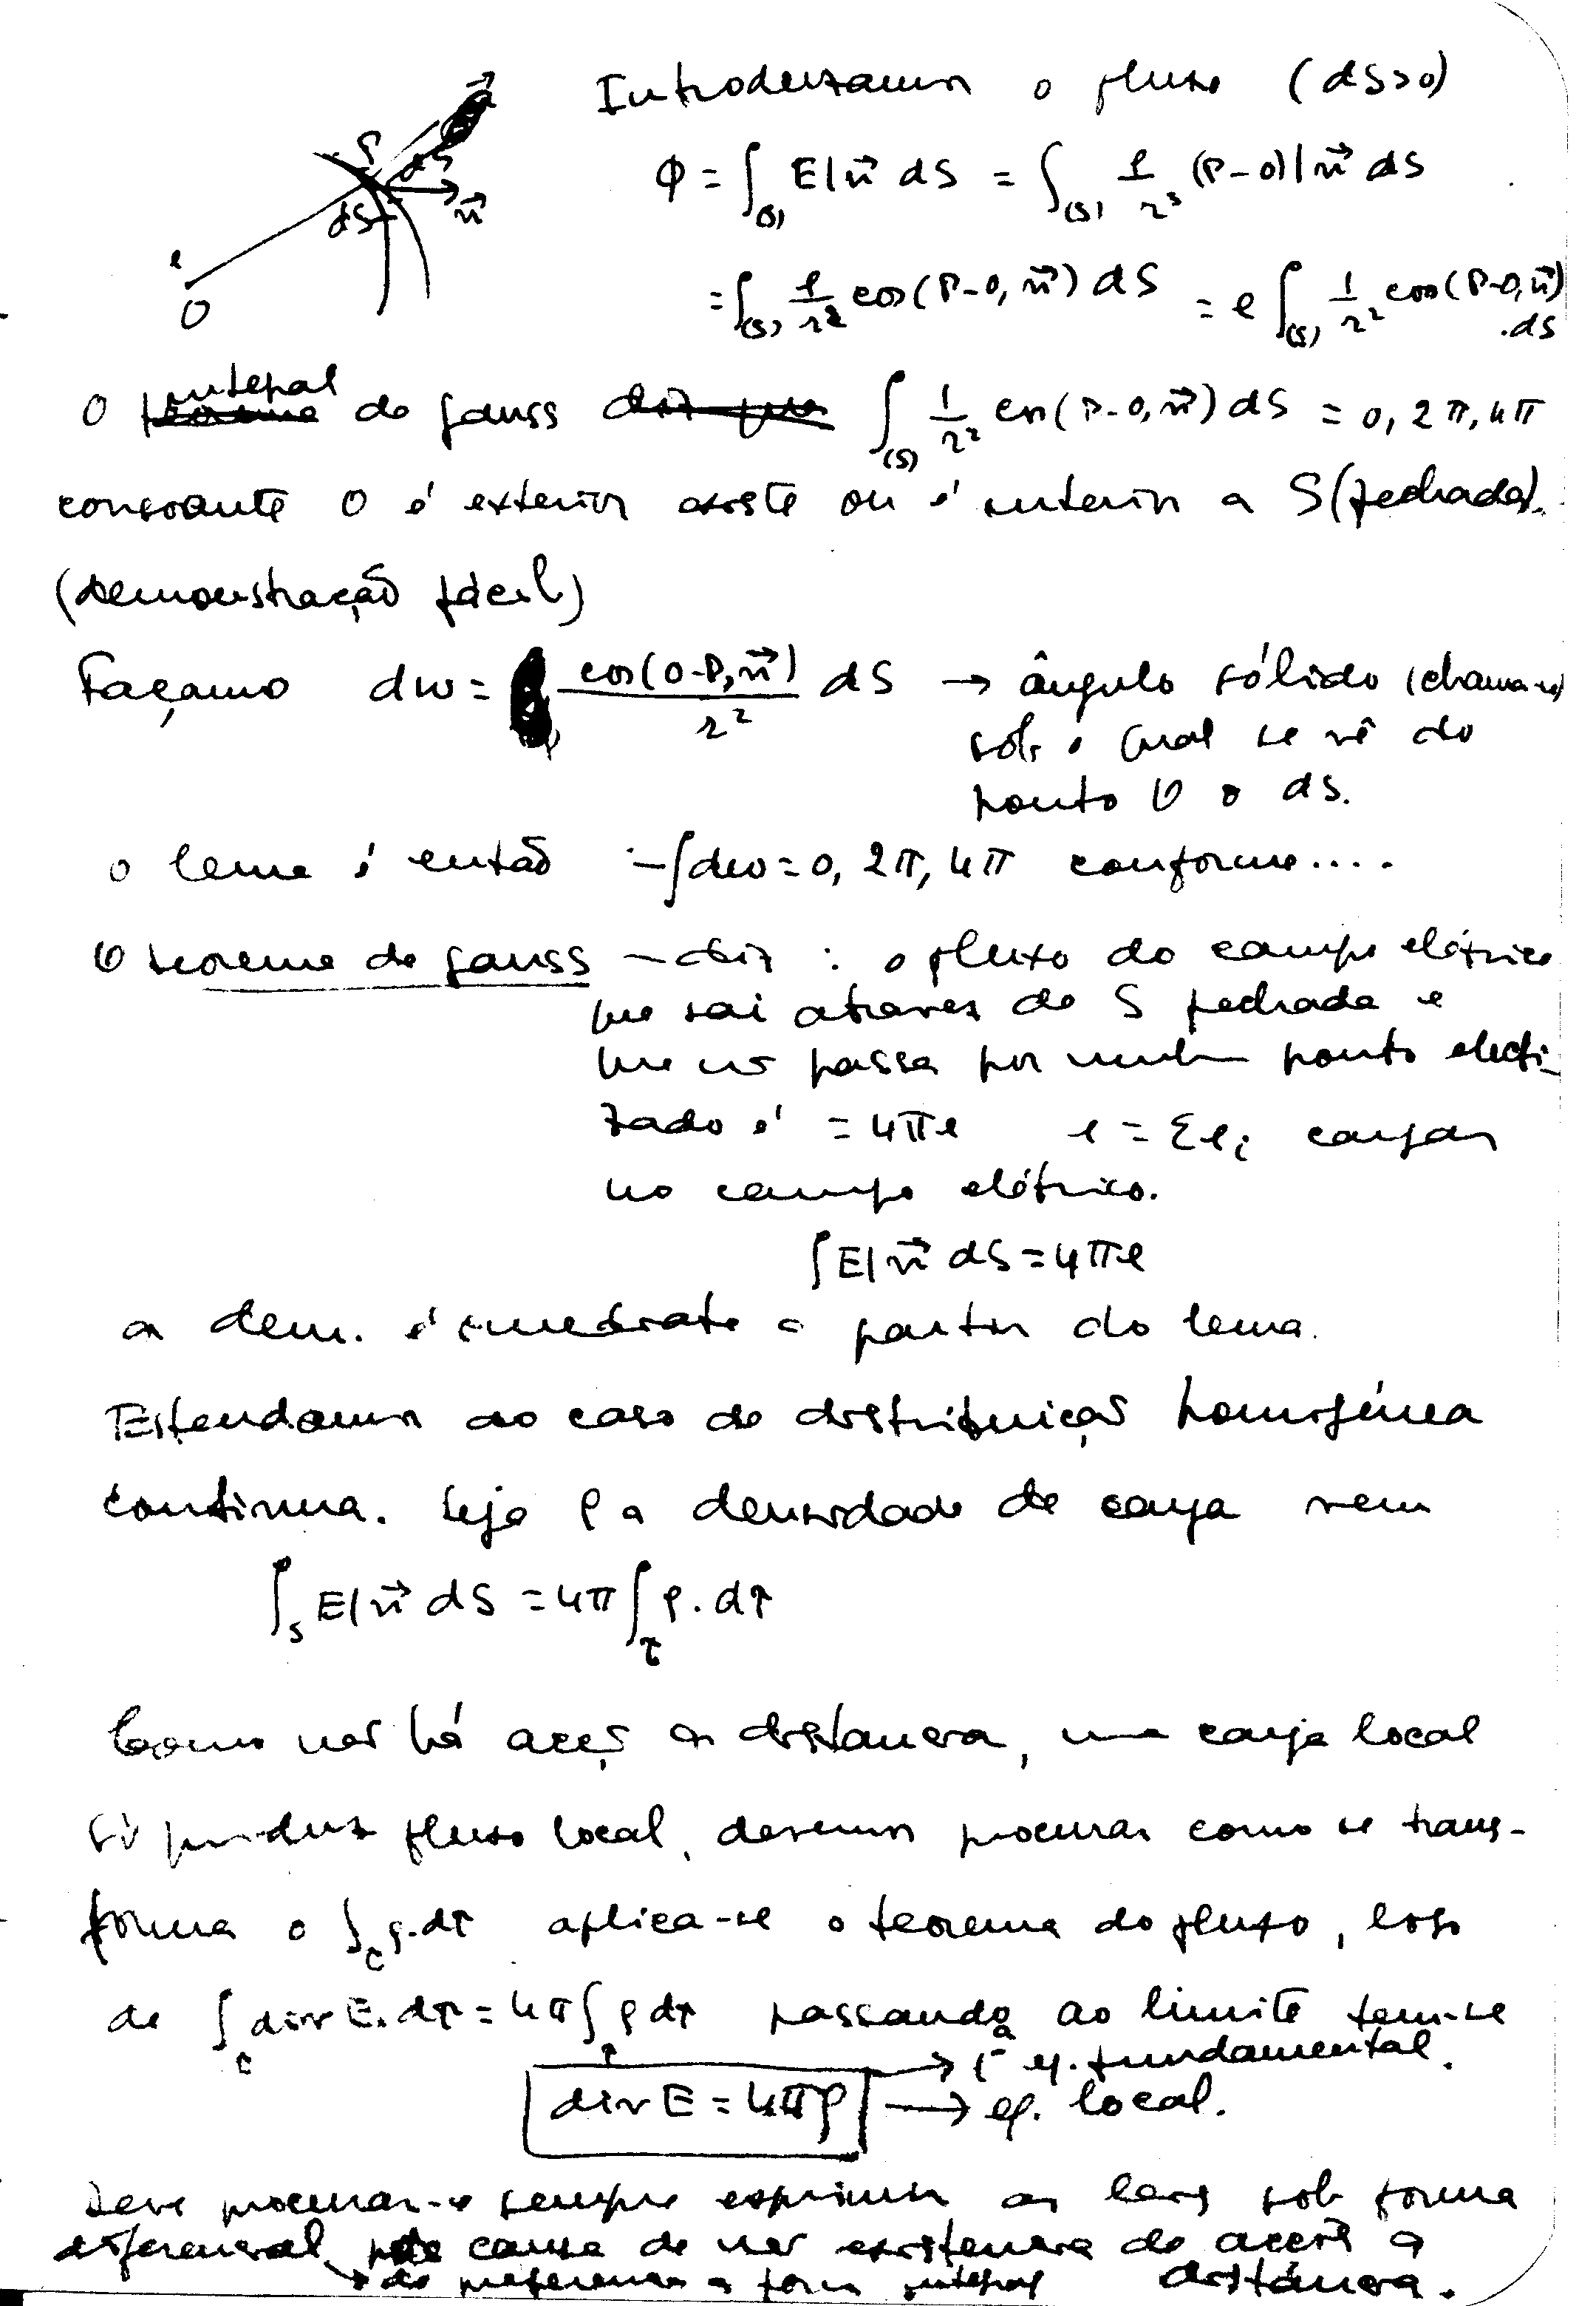 Introduzamos o fluxo (dS>0)
P dS n⃗ dS e O
Φ = ∫(S) E|n⃗ dS = ∫(S) e/r³ (P-O)|n⃗ dS
= ∫(S) e/r² cos(P-O, n⃗) dS = e ∫(S) 1/r² cos(P-O, n⃗) . dS
O integral de Gauss ∫(S) 1/r² cos(P-O, n⃗) dS = 0, 2π, 4π
consoante O é exterior, existe ou é interior a S (fechada).
(demonstração fácil)
Façamo dw = cos(O-P, n⃗)/r² dS → ângulo sólido (chama-se)
sob o qual se vê do
ponto O o dS.
o lema é então -∫dw = 0, 2π, 4π conforme....
O teorema de Gauss - diz : o fluxo do campo elétrico
que sai através de S fechada e
que não passa por nenhum ponto electri-
zado é = 4πe e = Σei cargas
no campo elétrico.
∫E|n⃗ dS = 4πe
a dem. é imediata a partir do lema.
Estendamos ao caso de distribuição homogénea
contínua. Seja ρ a densidade de carga vem
∫S E|n⃗ dS = 4π ∫τ ρ. dτ
Como não há acção a distancia, uma carga local
só produz fluxo local, devemos procurar como se trans-
forma o ∫τ ρ.dτ aplica-se o teorema do fluxo, logo
de ∫τ div E. dτ = 4π∫τ ρ dτ passando ao limite tem-se
→ 1ª eq. fundamental.
div E = 4πρ → eq. local.
Deve procurar-se sempre exprimir as leis sob forma
diferencial por causa de não existencia de acção a
→ de preferencia a forma integral distância.